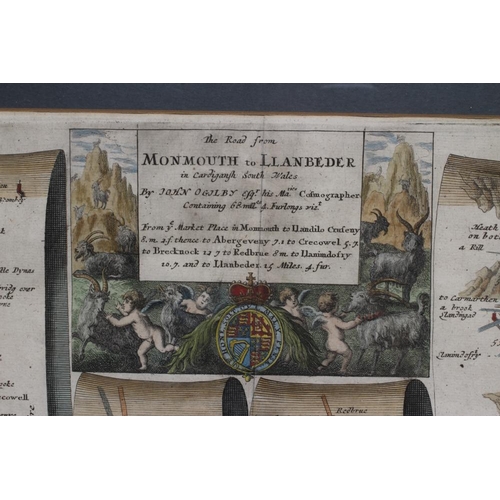 The Road from
MONMOUTH to LLANBEDER
in Cardigansh South Wales
By JOHN OGILBY Esqr. his Maties. Cosmographer
Containing 68 mills. 4 Furlongs vizt
From ye Market Place in Monmouth to Llandilo Cruseny
8 m. 2 f. thence to Abergeveny 7.1 to Crecowel 5.7.
to Brecknock 12 7 to Redbrue 8 m. to Llanimdofry
10.7. and to Llanbeder 15 Miles. 4 fur.
on
he Dynas
bridg over
Crecowell
Redbrue
Neath
on bot
a Rill
to Carmarthen
a brook
Llandingad
Llanimdofry